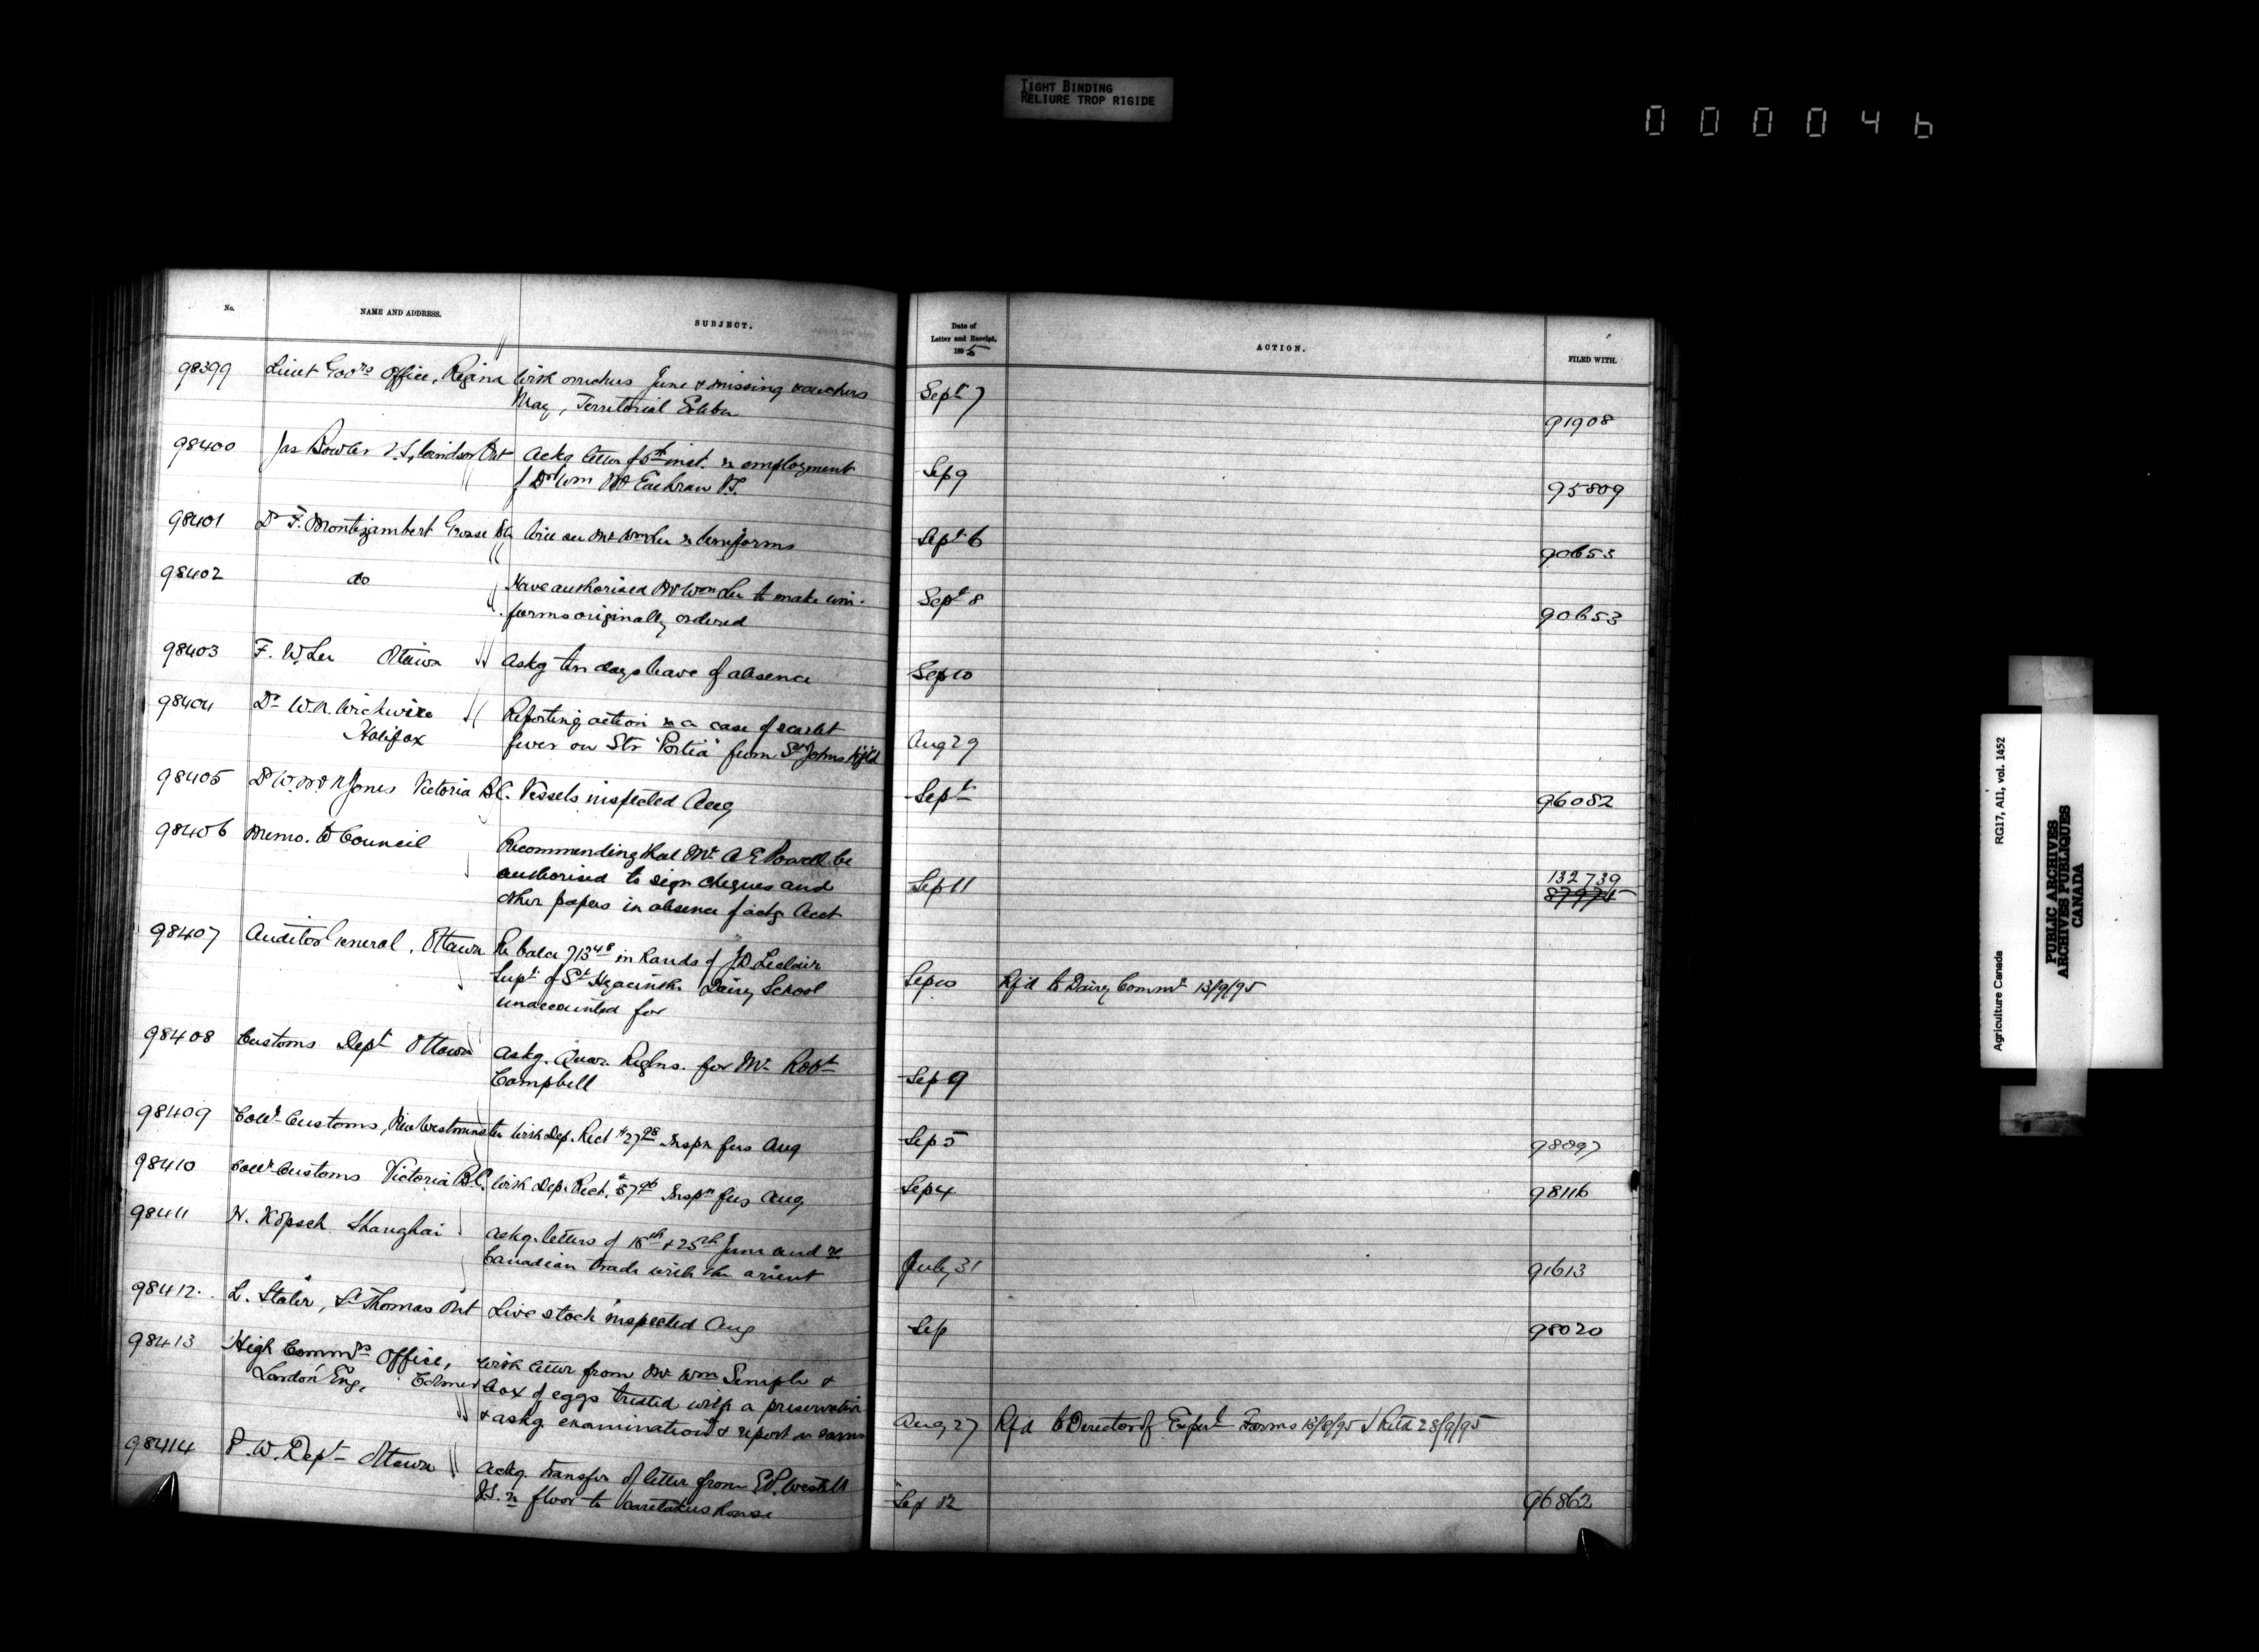 TIGHT BINDING
RELIURE TROP RIGIDE
000046
No.
NAME AND ADDRESS.
SUBJECT.
Date of
Letter and Receipt,
1895
ACTION.
FILED WITH.
98399 Lieut Govrs Office, Regina With vouchers June & missing vouchers Sept 7
May, Territorial 91908
98400 Jas Bowler V.S, Windsor Ont Ackg letter of 5th inst. re employment Sep 9
of Dr Wm McEachran V.S. 95809
98401 Dr F. Montizambert Grosse Wire see Mr re Uniforms Sept 6 90653
98402 do Have authorised Mr to make uni- Sept 8
forms originally ordered 90653
98403 F. W. Lee Ottawa Askg ten days leave of absence Sep 10
98404 Dr W.N. Wickwire Reporting action re a case of scarlet
Halifax fever on Str "Portia" from St Johns Nfld Aug 29
98405 Dr W. Jones Victoria B.C. Vessels inspected Aug Sept 96082
98406 Memo. to Council Recommending that Mr A E Powell be
authorised to sign cheques and Sep 11 132739
other papers in absence of actg Acct 87974
98407 Auditor General, Ottawa Re balce 713.48 in hands of J.D. Leclair
Supt of St Hyacinthe Dairy School Sep 10 Rfd to Dairy Commr 13/9/95
unaccounted for
98408 Customs Dept Ottawa Askg. Quar. Reglns. for Mr Robt
Campbell Sep 9
98409 Collr Customs, New Westminster With Dep. Rect $27.98 Inspn fees Aug Sep 5 98097
98410 Collr Customs Victoria B.C. With Dep. Rect. $57.96 Inspn fees Aug Sep 4 98116
98411 N. Kopsch Shanghai Ackg. letters of 18th & 25th June and re
Canadian trade with the orient July 31 91613
98412 L. Slater, St Thomas Ont Live stock inspected Aug Sep 98020
98413 High Commrs Office, With letter from Mr Wm Semple &
London Eng, Colmer box of eggs treated with a preservative
& askg examination & report on same Aug 27 Rfd to Director of Experl Farms 13/9/95 Retd 28/9/95
98414 P. W. Dept Ottawa Ackg. transfer of letter from
re floor to caretakers house Sep 12 96862
Agriculture Canada
RG17, AII, vol. 1452
PUBLIC ARCHIVES
ARCHIVES PUBLIQUES
CANADA